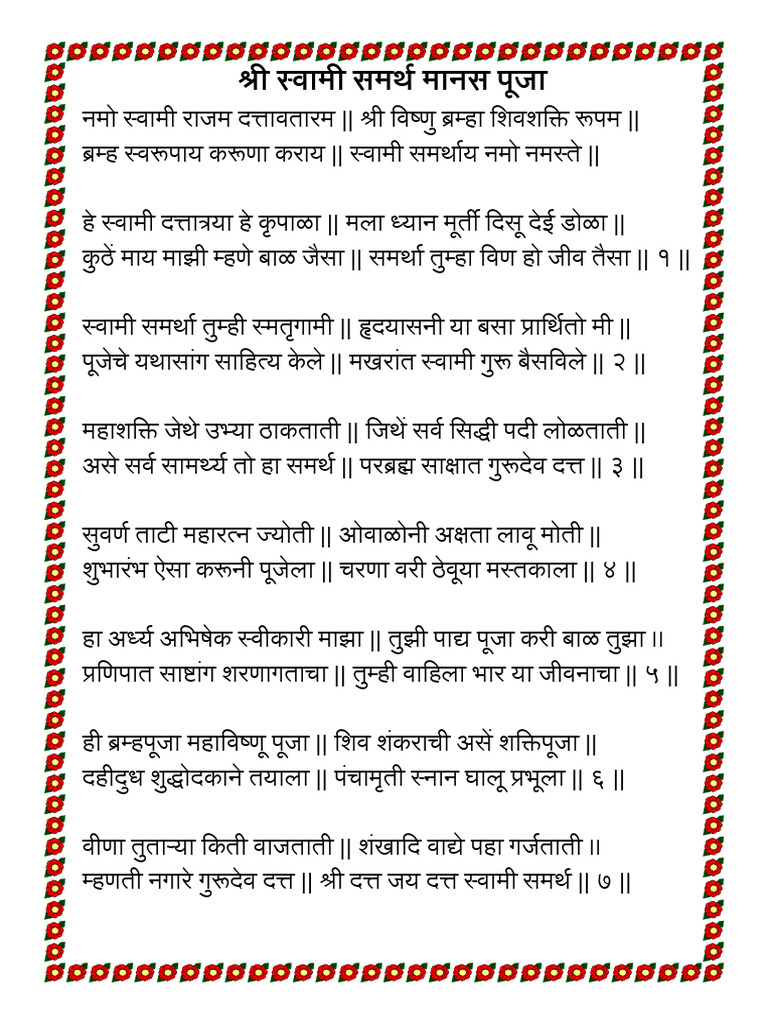 श्री स्वामी समर्थ मानस पूजा
नमो स्वामी राजम दत्तावतारम || श्री विष्णु ब्रम्हा शिवशक्ति रूपम ||
ब्रम्ह स्वरूपाय करूणा कराय || स्वामी समर्थाय नमो नमस्ते ||
हे स्वामी दत्तात्रया हे कृपाळा || मला ध्यान मूर्ती दिसू देई डोळा ||
कुठें माय माझी म्हणे बाळ जैसा || समर्था तुम्हा विण हो जीव तैसा || १ ||
स्वामी समर्था तुम्ही स्मतृगामी || हृदयासनी या बसा प्रार्थितो मी ||
पूजेचे यथासांग साहित्य केले || मखरांत स्वामी गुरू बैसविले || २ ||
महाशक्ति जेथे उभ्या ठाकताती || जिथें सर्व सिद्धी पदी लोळताती ||
असे सर्व सामर्थ्य तो हा समर्थ || परब्रह्म साक्षात गुरूदेव दत्त || ३ ||
सुवर्ण ताटी महारत्न ज्योती || ओवाळोनी अक्षता लावू मोती ||
शुभारंभ ऐसा करूनी पूजेला || चरणा वरी ठेवूया मस्तकाला || ४ ||
हा अर्ध्य अभिषेक स्वीकारी माझा || तुझी पाद्य पूजा करी बाळ तुझा ।।
प्रणिपात साष्टांग शरणागताचा || तुम्ही वाहिला भार या जीवनाचा || ५ ||
ही ब्रम्हपूजा महाविष्णू पूजा || शिव शंकराची असें शक्तिपूजा ||
दहीदुध शुद्धोदकाने तयाला || पंचामृती स्नान घालू प्रभूला || ६ ||
वीणा तुताऱ्या किती वाजताती || शंखादि वाद्ये पहा गर्जताती ।।
म्हणती नगारे गुरूदेव दत्त || श्री दत्त जय दत्त स्वामी समर्थ || ७ ||